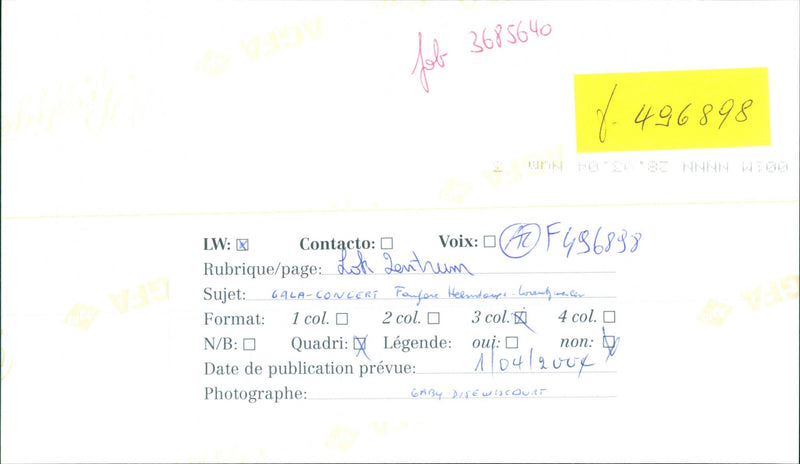 AGFA
Job 3685640
f. 496898
LW: ☒ Contacto: ☐ Voix: ☐ F496898
Rubrique/page: Lok Zentrum
Sujet: GALA-CONCERT Fanfare
Format: 1 col. ☐ 2 col. ☐ 3 col. ☒ 4 col. ☐
N/B: ☐ Quadri: ☒ Légende: oui: ☐ non: ☒
Date de publication prévue: 1/04/2004
Photographe: GABY DISEWISCOURT